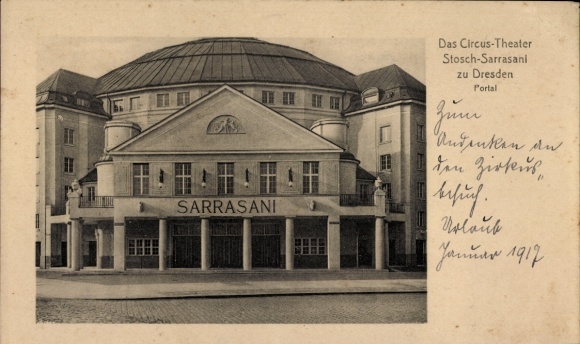 Das Circus-Theater
Stosch-Sarrasani
zu Dresden
Portal
SARRASANI
Zum
Andenken an
den Zirkus-
besuch.
Urlaub
Januar 1917